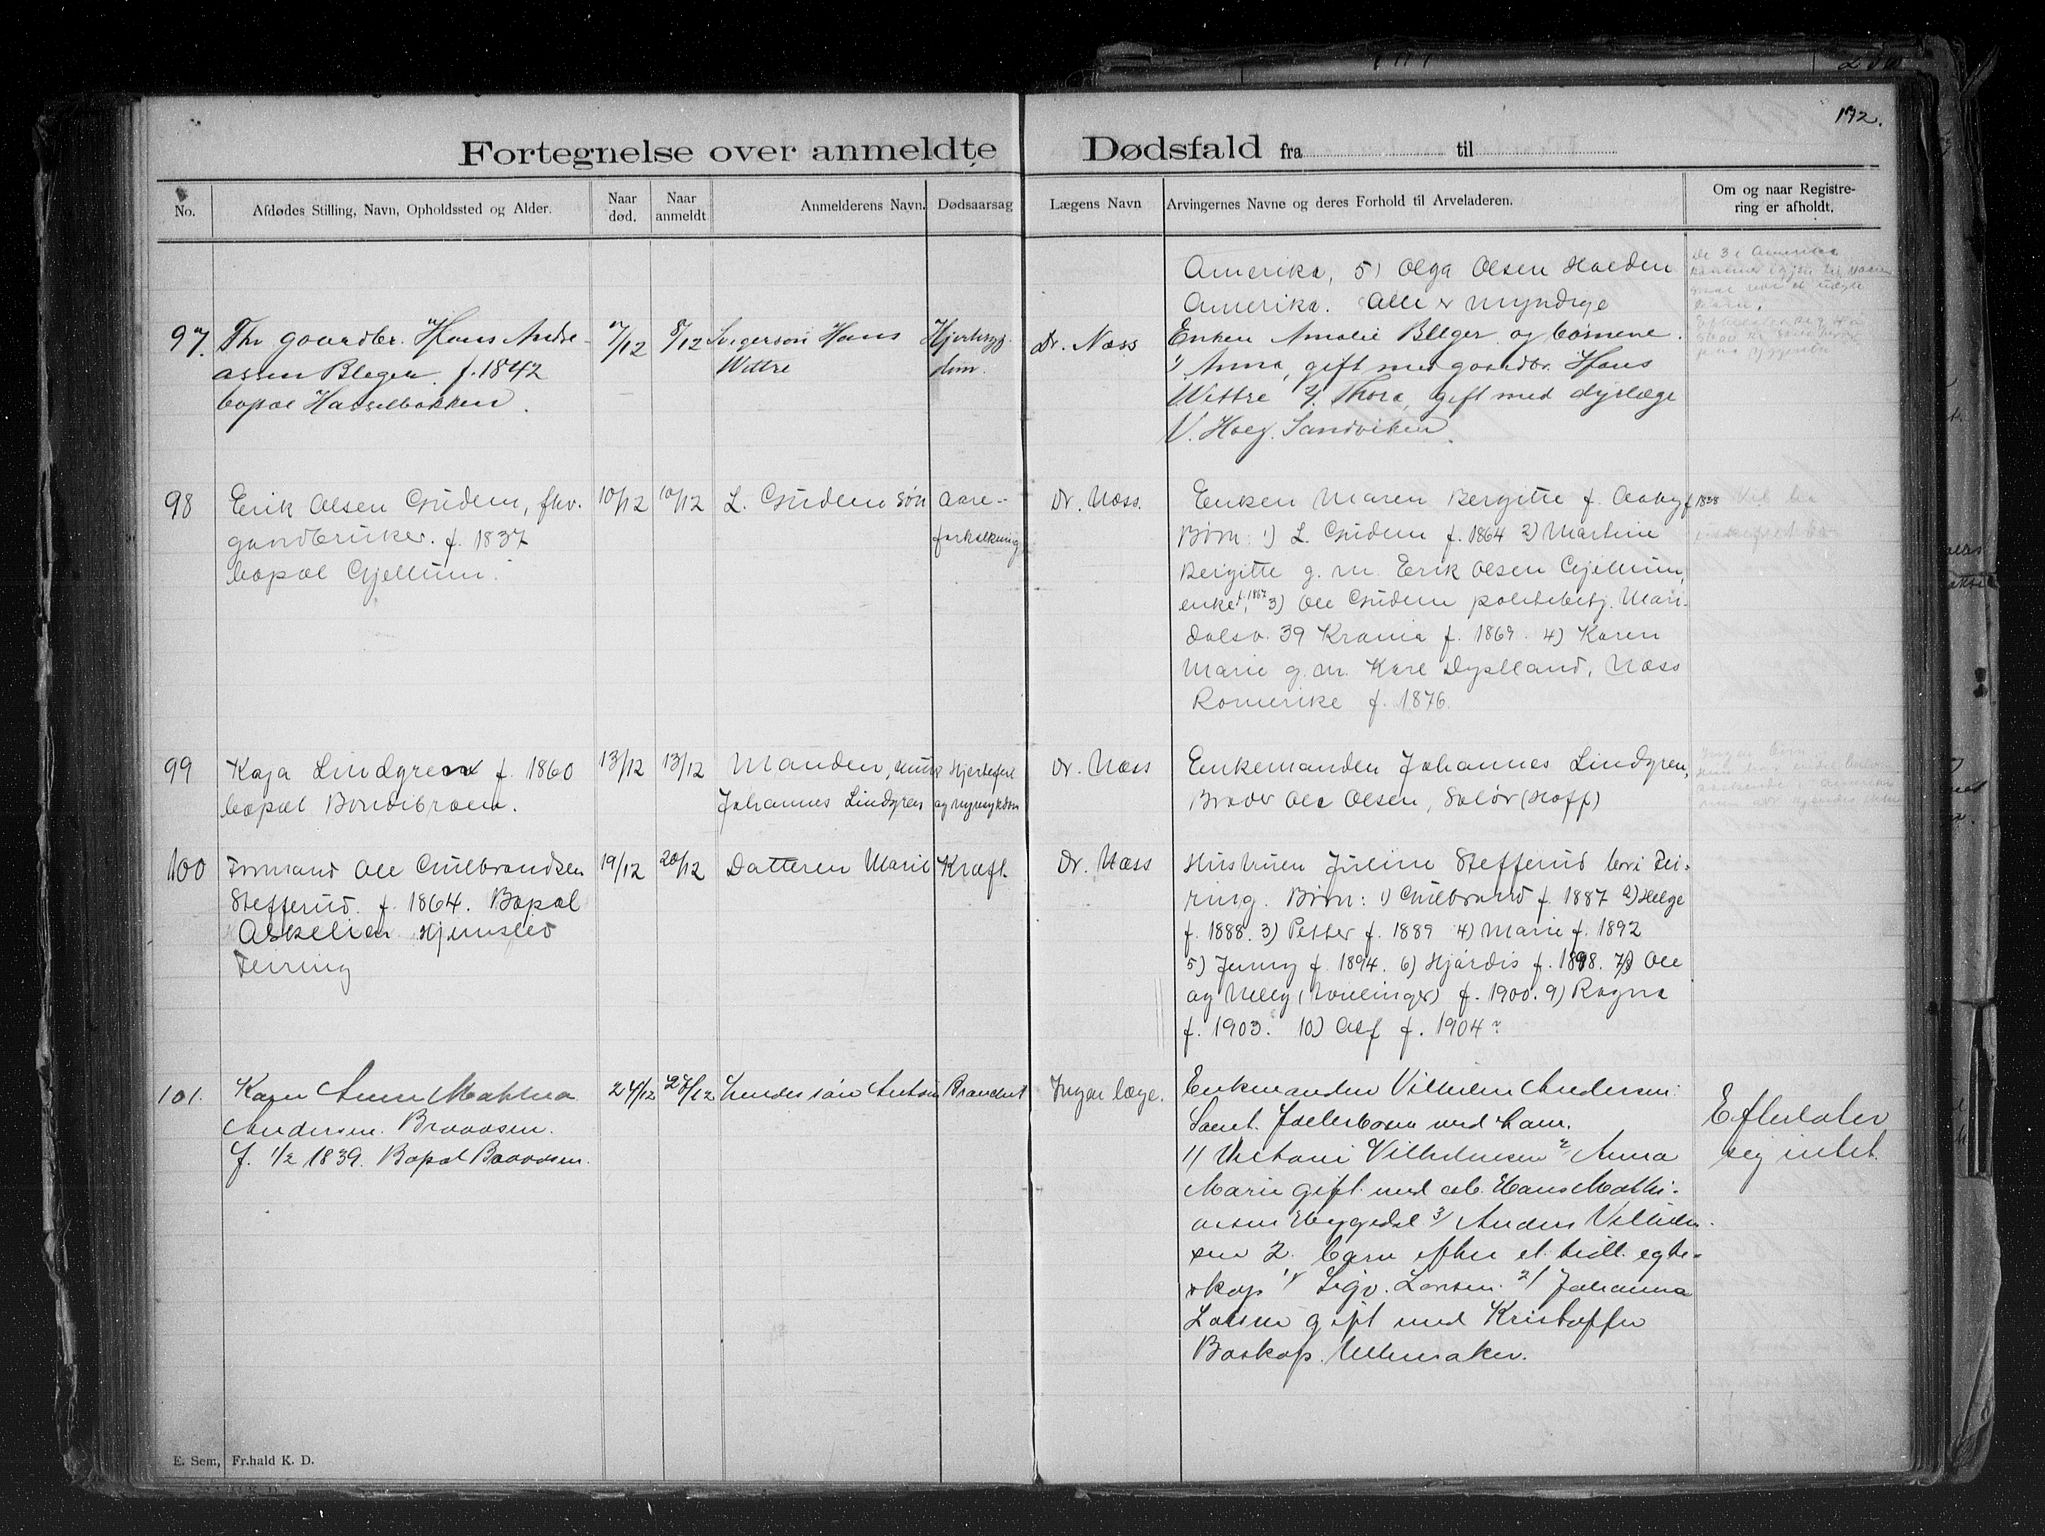 192.
Fortegnelse over anmeldte Dødsfald fra til
No. Afdødes Stilling, Navn, Opholdssted og Alder. Naar død. Naar anmeldt Anmelderens Navn. Dødsaarsag Lægens Navn Arvingernes Navne og deres Forhold til Arveladeren. Om og naar Registrering er afholdt.
Amerika, 5) Olga Olsen Holden
Amerika. Alle er myndige
De 3 i Amerika
97. Fhv gaardbr. Hans Andre-
assen Bleger f. 1842
bopæl Hasselbakken.
7/12 8/12 Svigersøn Hans
Wettre
Hjertesyg-
dom.
Dr. Næss
Enken Amalie Bleger og børnene
1) Anna, gift med gaardbr. Hans
Wettre 2/ Thora, gift med dyrlæge
V. Hoeg. Sandviken.
98 Erik Olsen Gudem, fhv.
gaardbruker. f. 1837
bopæl Gjellum.
10/12 10/12 L. Gudem søn Aare-
forkalkning
Dr. Næss.
Enken Maren Bergitte f. Aaby f 1838
Børn: 1) L. Gudem f. 1864 2) Martine
Bergitte g. m. Erik Olsen Gjellum,
enke, f. 1867 3) Ole Gudem politibetj. Mari-
dalsv. 39 Krania f. 1869. 4) Karen
Marie g. m. Karl Dyslland, Næss
Romerike f. 1876.
Vil ha
99 Kaja Lindgren f. 1860
bopæl Bondibraten.
13/12 13/12 Manden, mur
Johannes Lindgren
Hjertefeil
og nyresykdom
Dr. Næss
Enkemanden Johannes Lindgren,
Broder Ole Olsen, Solør (Hoff)
Ingen børn
100 Formand Ole Gulbrandsen
Stefferud. f. 1864. Bopæl
Askelien Hjemsted
Teiring
19/12 20/12 Datteren Marie Kræft.
Dr. Næss
Hustruen Juline Stefferud bor i Tei-
ring. Børn: 1) Gulbrand f. 1887 2) Helge
f. 1888. 3) Petter f. 1889 4) Marie f. 1892
5) Jenny f. 1894. 6) Hjørdis f. 1898. 7/8 Ole
og Nelly (tvillinger) f. 1900. 9) Ragna
f. 1903. 10) Alf f. 1904?
101. Karen Anne Mathea
Andersen. Braadsen.
f. 1/2 1839. Bopæl Braadsen.
24/12 28/12 hendes søn Anton Brandent
Ingen læge.
Enkemanden Vilhelm Andersen.
Samt. fællesbarn med ham.
1) Anton Vilhelmsen 2/ Anna
Marie gift med arb. Hans Mathi-
assen Heggedal 3/ Anders Vilhelm-
sen 2. barn efter et tidl. egte-
skap 1/ Sigv. Larsen. 2/ Johanna
Larsen gift med Kristoffer
Baskop. Ullensaker.
Efterlater
sig intet.
E. Sem, Fr.hald K. D.